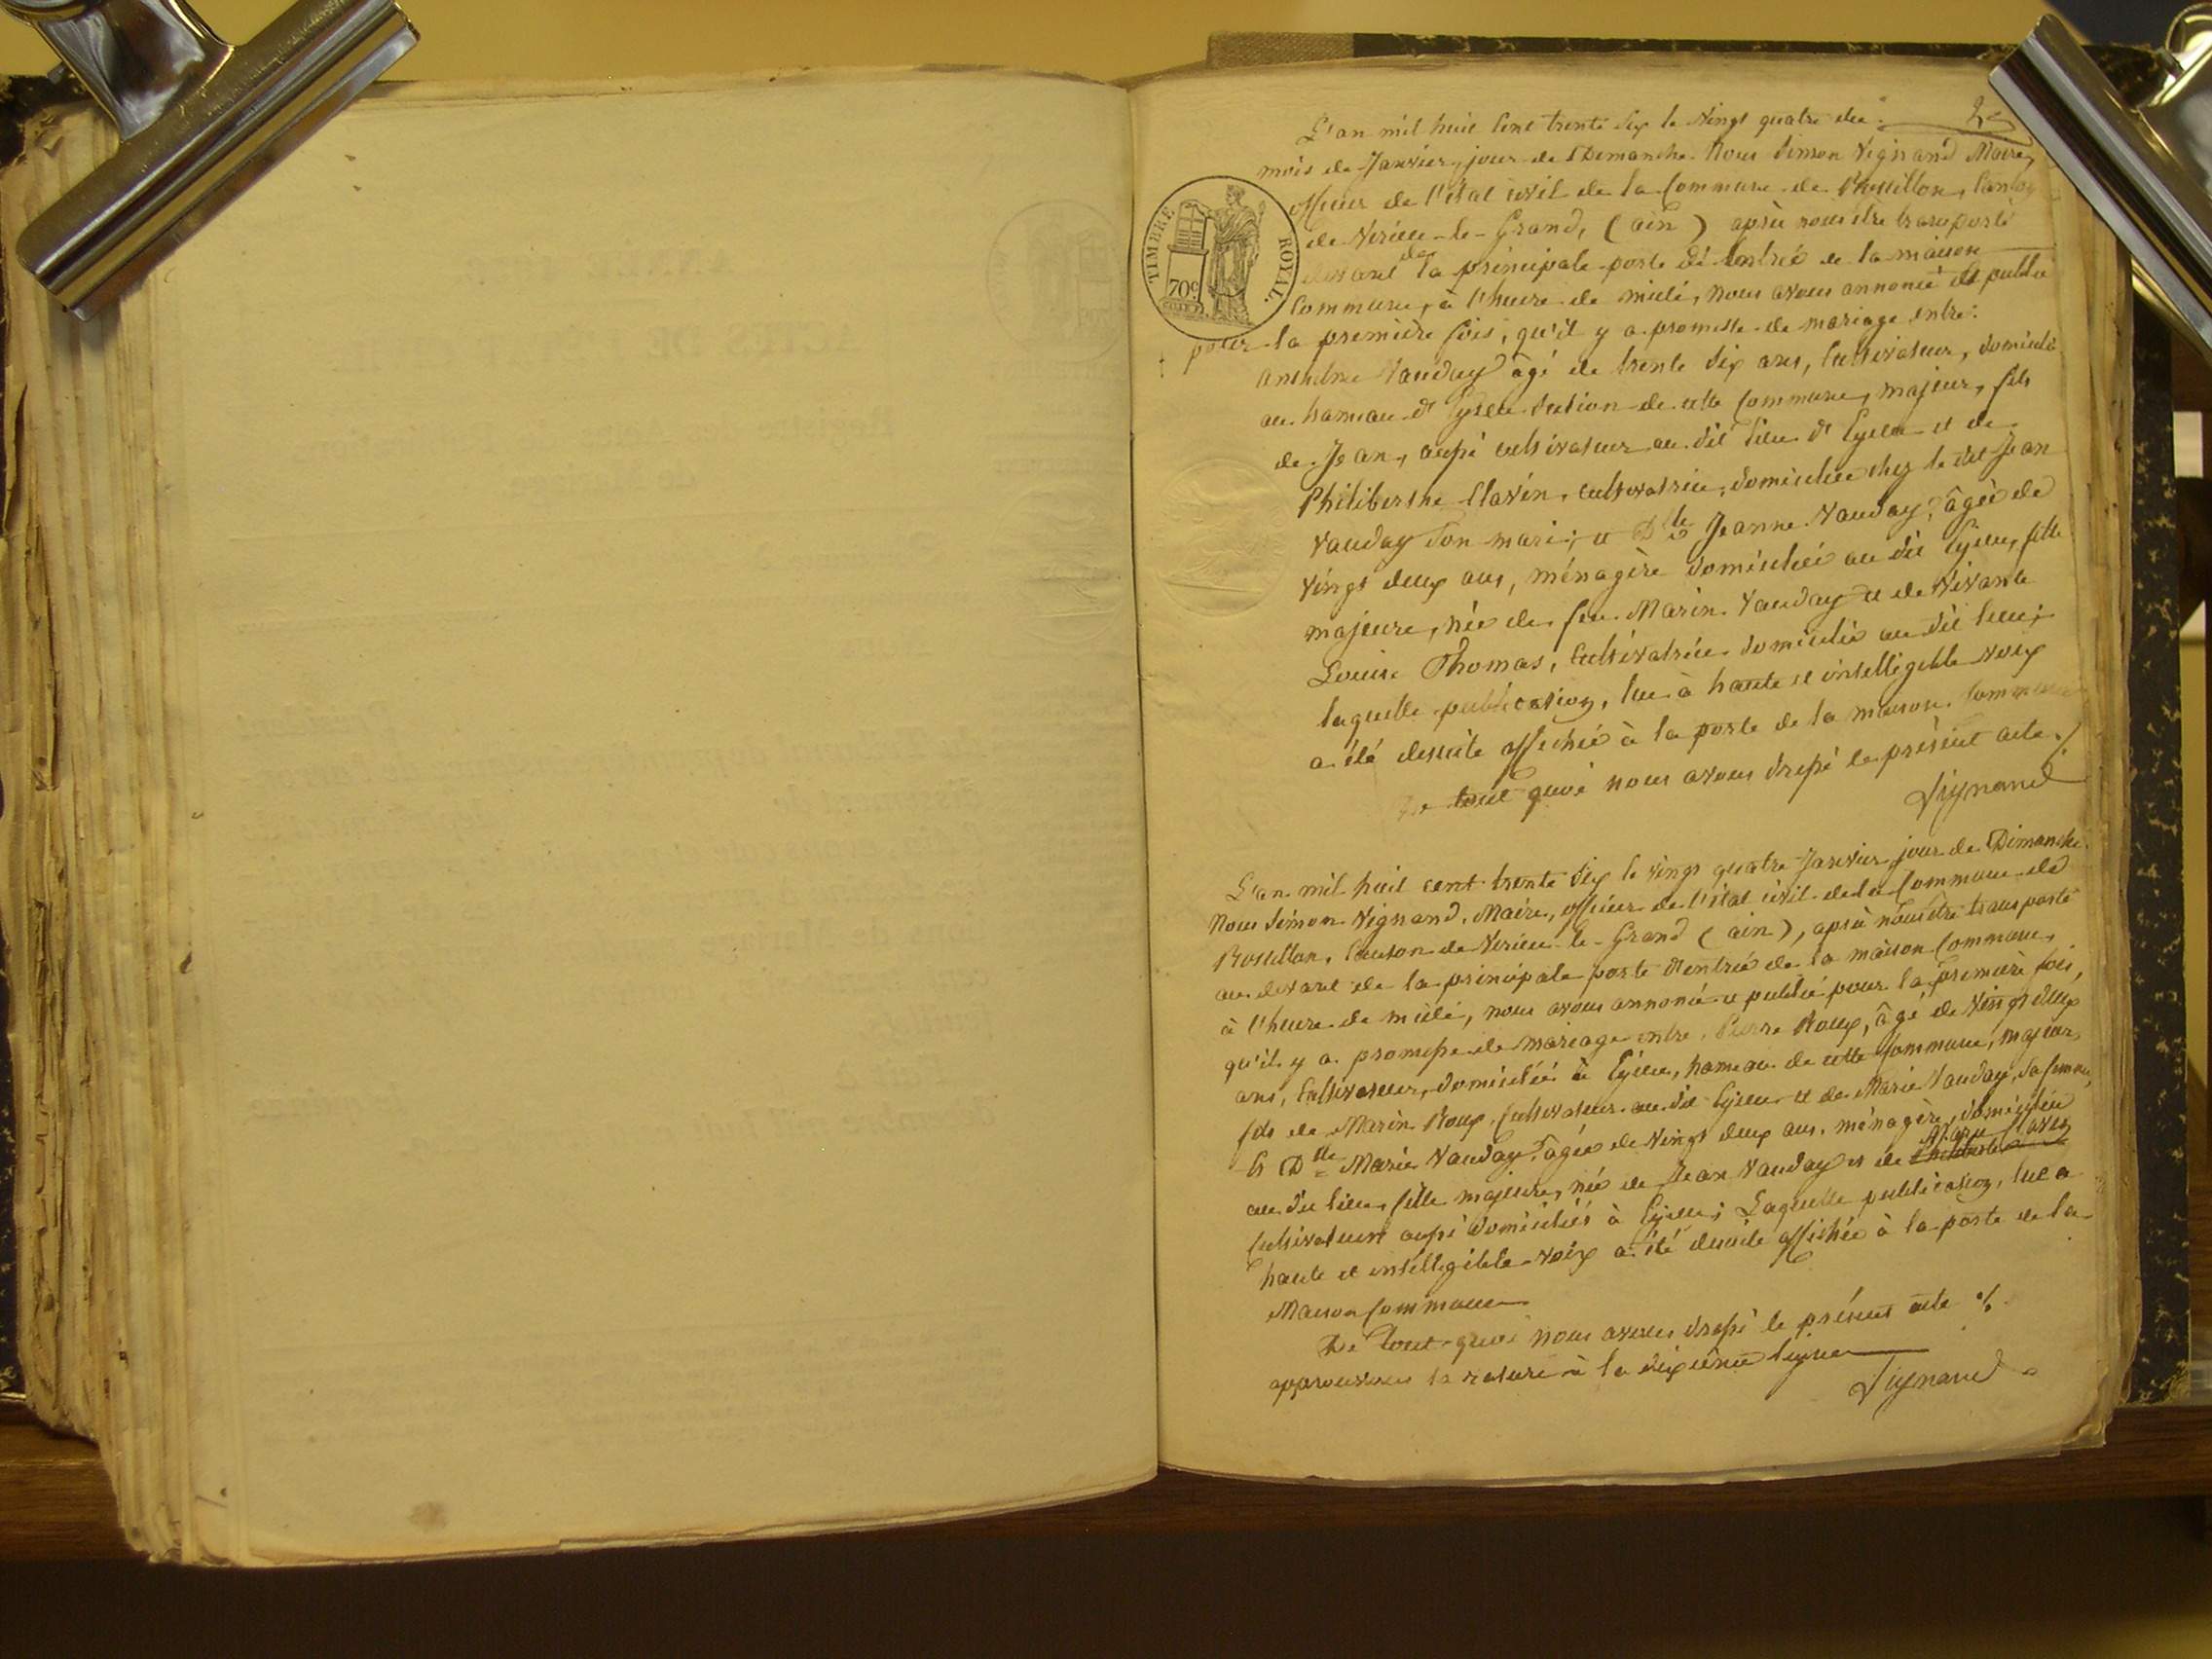 2
L'an mil huit cent trente six le vingt quatre du
mois de Janvier, jour de Dimanche. Nous Simon Vignand Maire,
officier de l'état civil de la Commune de Rossillon, Canton
de Virieu-le-Grand, (ain) après nous être transporté
devant de la principale porte d'entrée de la maison
Commune, à l'heure de midi, nous avons annoncé et publié
pour la première fois, qu'il y a promesse de mariage entre:
Anthelme Vauday âgé de trente six ans, Cultivateur, domicilié
au hameau d' section de cette Commune, majeur, fils
de Jean, aussi cultivateur au dit lieu d' et de
Philiberthe Clavin, cultivatrice, domiciliée chez le dit Jean
Vauday son mari; et Dlle Jeanne Vauday, âgée de
vingt deux ans, ménagère domiciliée au dit fille
majeure, née de feu Marin Vauday et de vivante
Louise Thomas, Cultivatrice domiciliée au dit lieu;
laquelle publication, lue à haute et intelligible voix
a été desuite affichée à la porte de la maison Commune
De tout quoi nous avons dressé le présent acte ./.
Vignand
TIMBRE ROYAL.
70c
L'an mil huit cent trente six le vingt quatre Janvier jour de Dimanche.
Nous Simon Vignand, Maire, officier de l'état civil de la Commune de
Rossillon, Canton de Virieu-le-Grand (ain), après nous être transporté
au devant de la principale porte d'entrée de la maison Commune,
à l'heure de midi, nous avons annoncé et publié pour la première fois,
qu'il y a promesse de mariage entre Pierre Roux, âgé de vingt deux
ans, Cultivateur, domicilié à hameau de cette Commune, majeur,
fils de Marin Roux, Cultivateur au dit et de Marie Vauday, sa femme,
Et Dlle Marie Vauday, âgée de vingt deux ans, ménagère, domiciliée
au dit lieu, fille majeure, née de Jean Vauday et de Philiberthe
Cultivateurs aussi domiciliés à Laquelle publication, lue a
haute et intelligible voix a été desuite affichée à la porte de la
Maison Commune
De tout quoi nous avons dressé le présent acte ./.
approuvons la rature à la dixième ligne
Vignand